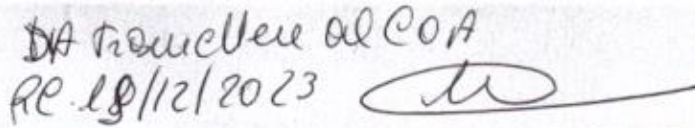 DA trasmettere al COA
RC. 18/12/2023